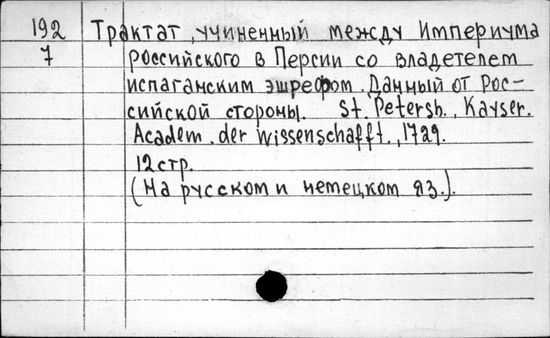 192 Трактат, учиненный между Империума
7 Российского в Персии со владетелем
испаганским эшрефом. Данный от Рос-
сийской стороны. St. Petersb., Kayser.
Academ. der Wissenschafft., 1729.
12 стр.
(На русском и немецком яз.).